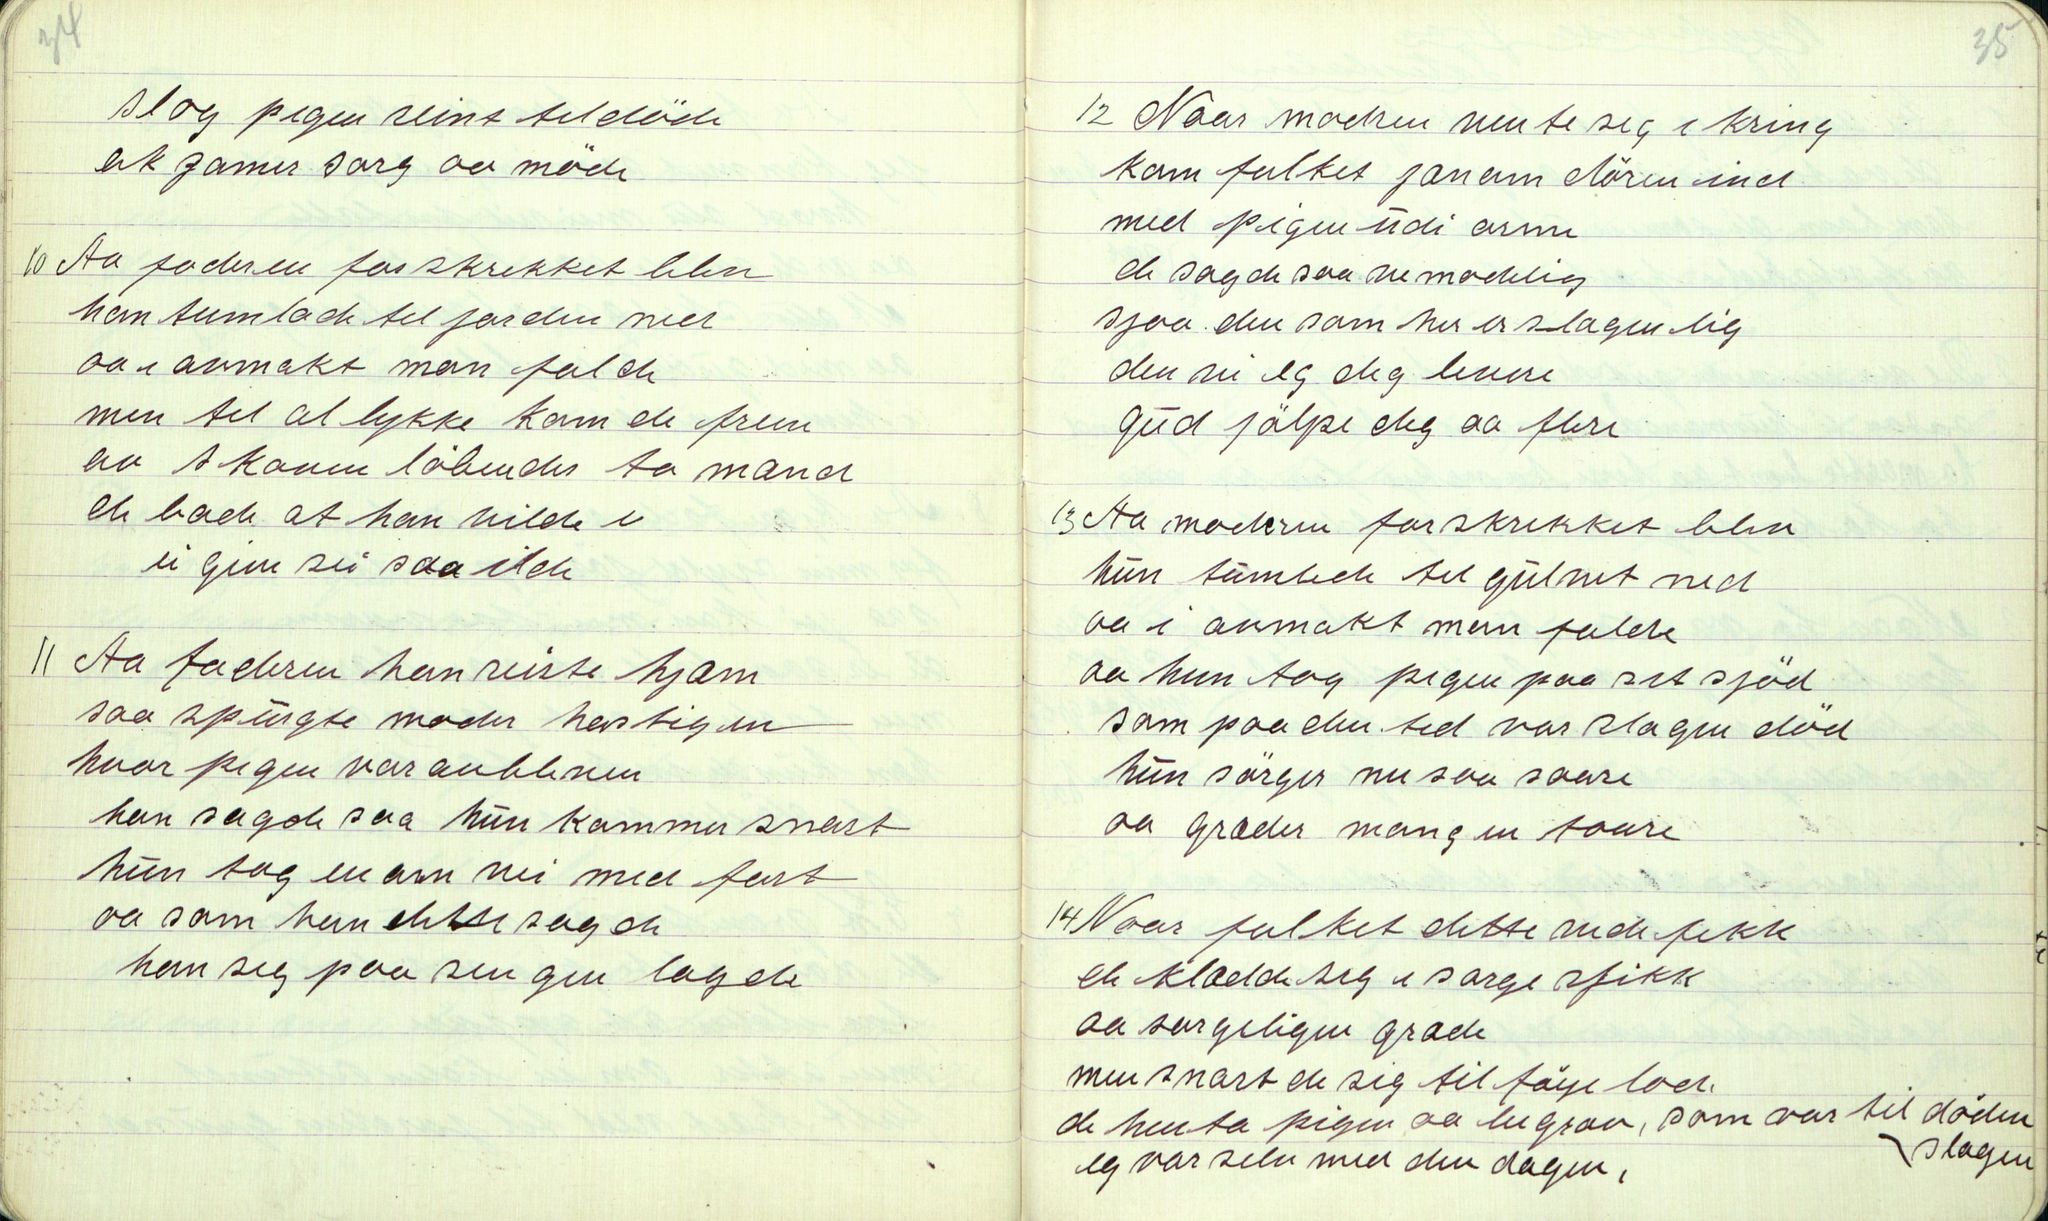 34
slog pigen reint til döde
ak jamer sorg aa möde
10 Aa faderen forskrekket blev
han tumlade til jorden ned
aa i avmakt man falde
men til al lykke kam de frem
av skoven löbendes to mand
de bade at han vilde
ei gjen sei saa ilde
11 Aa faderen han reiste hjæm
saa spurgte moder hastigen
hvor pigen var avbleven
han sagde saa hun kommer snart
hun tog en arn vei med fart
aa som han dette sagde
han seg paa sengen lagde
35
12 Naar modren vente seg i kring
kam folket janam dören ind
med pigen udi arme
de sagde saa vemodelig
sjaa den som her er slagen lig
den vi eg deg levere
gud jölpe deg aa flere
13 Aa modren forskrekket blev
hun tumlede til gulvet ned
aa i avmakt man falde
aa hun tog pigen paa set sjöd
som paa den tid var slagen död
hun sörger nu saa saare
aa græder mangen taare
14 Naar folket dette vede fekk
de klædde seg i sorge sjikk
aa sorgeligen græde
men snart de sig til föye lod.
de henta pigen aa begrov, som var til döden
slagen
eg var selv med den dagen,